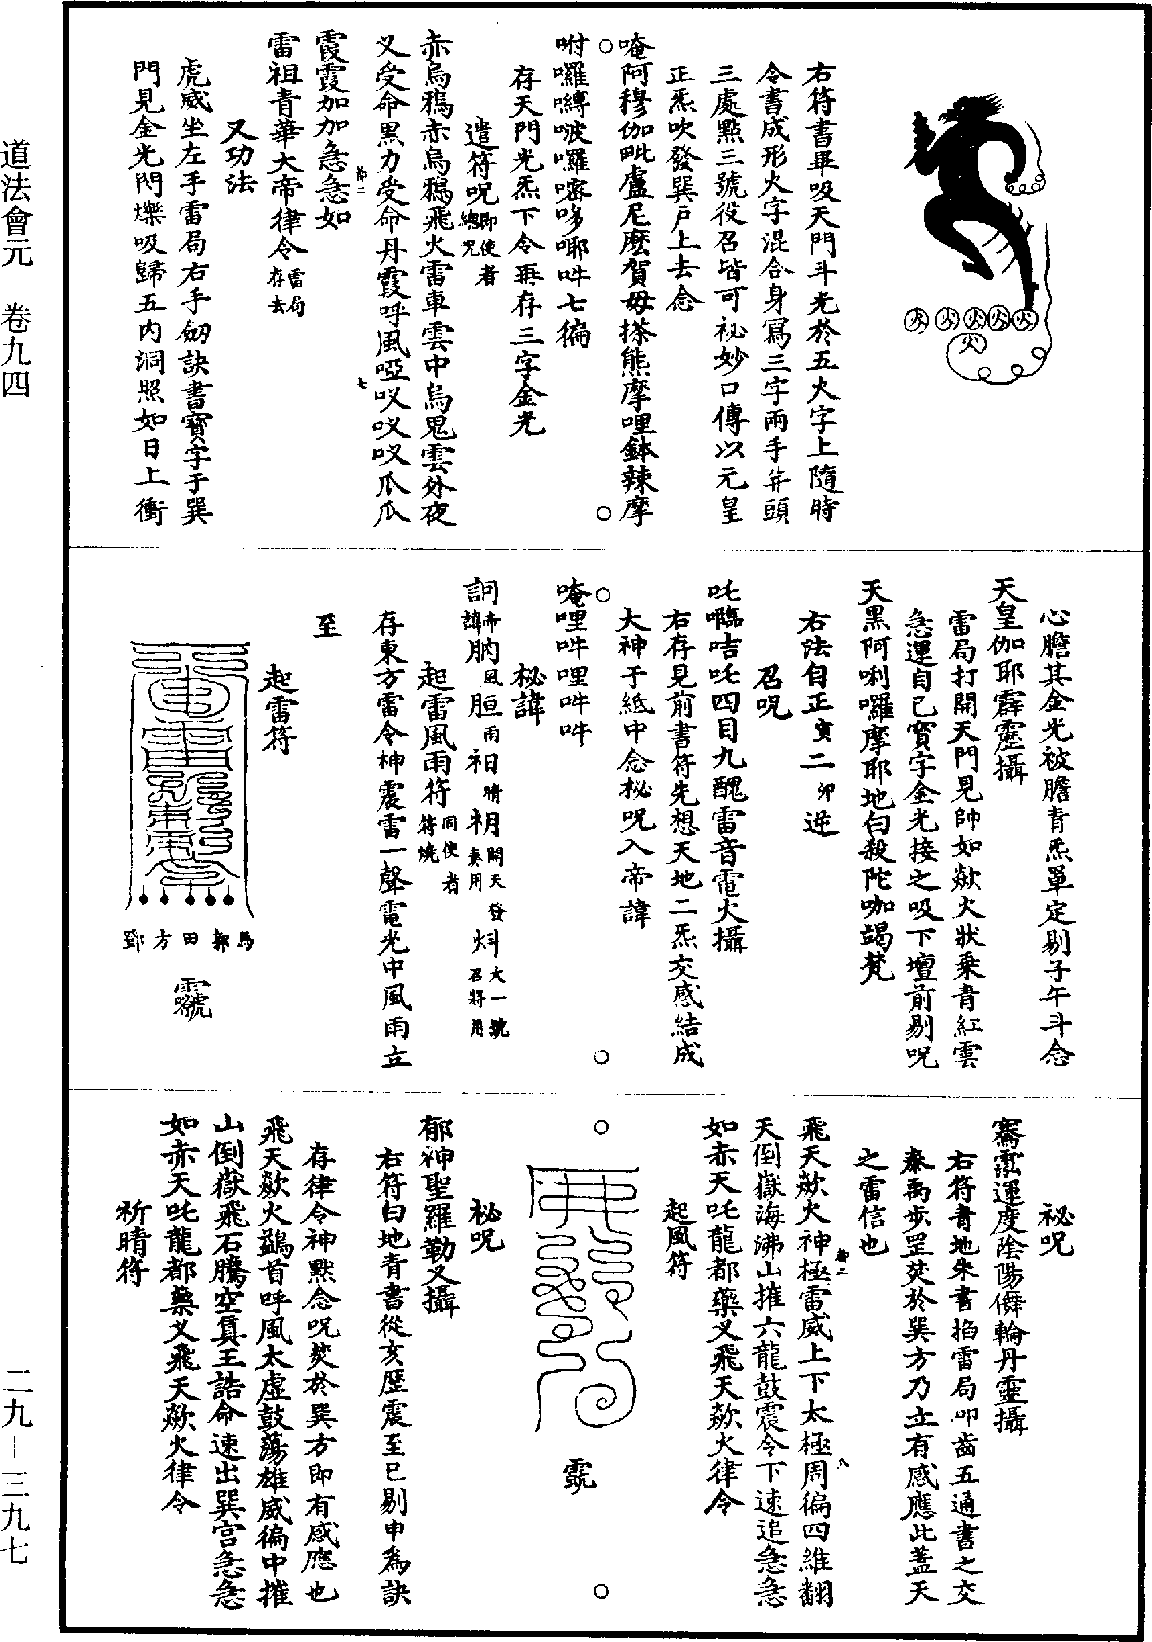 道法會元 卷九四
二九—三九七
火 火 火 火 火
火
右符書畢吸天門斗光於五火字上隨時
令書成形火字混合身寫三字兩手并頭
三處點三號役召皆可祕妙口傳以元皇
正炁吹發巽戶上去念
唵阿穆伽毗盧尼麼賀毋捺熊摩哩鉢辣摩
咐囉嚩啵囉嚓哆㖿吽七徧
存天門光炁下令再存三字金光
遣符呪即使者總咒
赤烏鴉赤烏鴉飛火雷車雲中烏鬼雲外夜
叉受命黑力受命丹霞呼風啞㕚㕚㕚爪爪
霞霞加加急急如
雷祖青華大帝律令雷局存去
又功法
虎威坐左手雷局右手劒訣書寶字于巽
門見金光閃爍吸歸五內洞照如日上衝
心膽其金光被膽青炁罩定剔子午斗念
天皇伽耶霹靂攝
雷局打開天門見帥如歘火狀乘青紅雲
急運自己寶字金光接之吸下壇前剔呪
天黑阿唎囉摩耶地白殺陀咖竭梵
右法自正寅二卯逆
召呪
吒囈咭吒四目九醜雷音電火攝
右存見前書符先想天地二炁交感結成
大神于紙中念祕呪入帝諱
唵哩吽哩吽吽
祕諱
訶帝諱肭風胆雨䄅晴䄃開天發奏用㸯大一號召將用
起雷風雨符同使者符燒
存東方雷令神震雷一聲電光中風雨立
至
起雷符
馬 郭 田 方 鄧
祕呪
騫霐運度陰陽僢輪丹靈攝
右符青地朱書掐雷局叩齒五通書之交
秦禹步罡焚於巽方乃立有感應此蓋天
之雷信也
飛天歘火神極雷威上下太極周徧四維翻
天倒嶽海沸山摧六龍鼓震令下速追急急
如赤天吒龍都藥叉飛天歘火律令
起風符
祕呪
郁神聖羅勒叉攝
右符白地青書從亥歷震至巳剔申為訣
存律令神默念呪焚於巽方即有感應也
飛天歘火鷁首呼風太虛鼓蕩雄威徧中摧
山倒嶽飛石騰空真王誥命速出巽宮急急
如赤天吒龍都藥叉飛天歘火律令
祈晴符